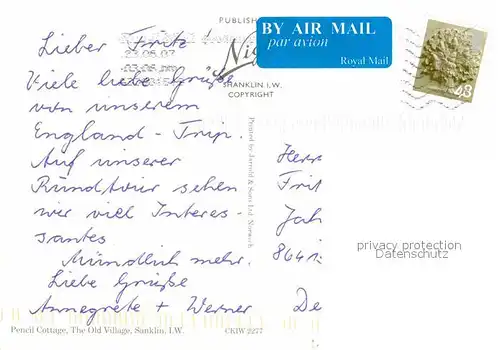 PUBLISH
BY AIR MAIL
par avion
Royal Mail
48
Nig
SHANKLIN I.W.
COPYRIGHT
23.08.07
03.08 pm
Lieber Fritz
Viele liebe Grüße
von unserem
England - Trip.
Auf unserer
Rundtour sehen
wir viel Interes-
santes
Mündlich mehr.
Liebe Grüße
Annegrete + Werner
Printed by Jarrold & Sons Ltd, Norwich
Herr
Frit
Jah
8641
De
privacy protection
Datenschutz
Pencil Cottage, The Old Village, Sanklin, I.W. CKIW 2277